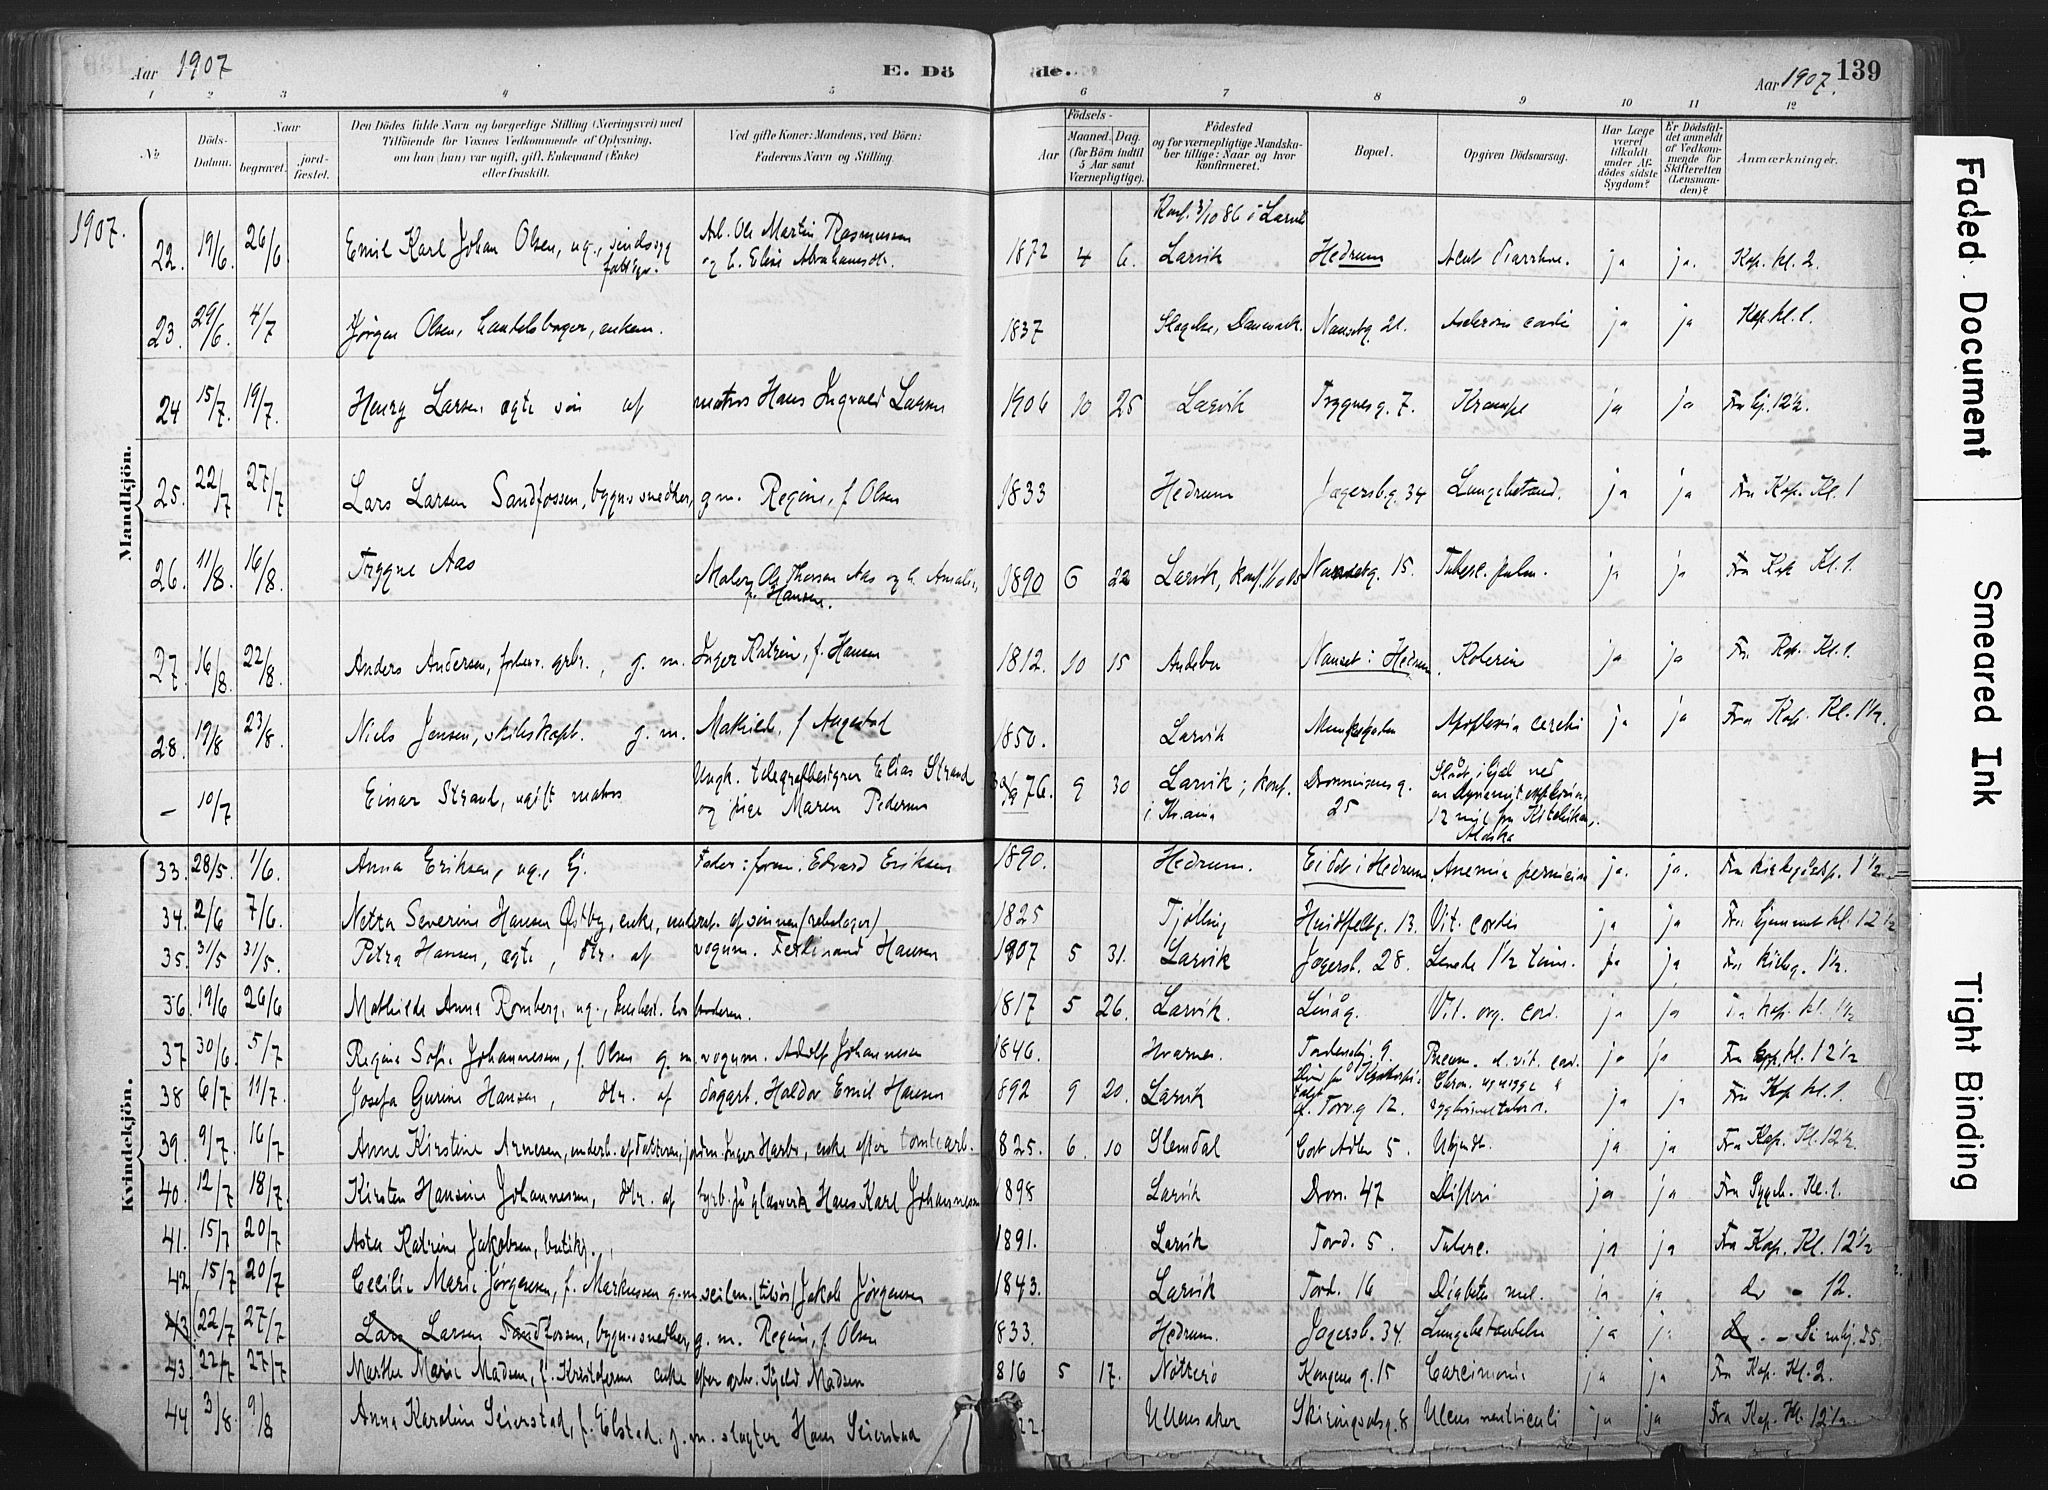 Aar 1907 E. Dö
de. Aar 1907. 139
1 2 3 4 5 6 7 8 9 10 11 12
No
Döds-Datum.
Naar
begravet.
jord-fæstet.
Den Dödes fulde Navn og borgerlige Stilling (Næringsvei) med
Tilföiende for Voxnes Vedkommende af Oplysning,
om han (hun) var ugift, gift, Enkemand (Enke)
eller fraskilt.
Ved gifte Koner: Mandens, ved Börn:
Faderens Navn og Stilling.
Födsels-
Aar
Maaned. Dag.
(for Börn indtil
5 Aar samt
Værnepligtige).
Födested
og for værnepligtige Mandska-
ber tillige: Naar og hvor
konfirmeret.
Bopæl.
Opgiven Dödsaarsag.
Har Læge
været
tilkaldt
under Af-
dödes sidste
Sygdom?
Er Dödsfal-
det anmeldt
af Vedkom-
mende for
Skifteretten
(Lensman-
den)?
Anmærkninger.
Mandkjön.
1907.
22. 19/6. 26/6 Emil Karl Johan Olsen, ug., sindssyg Arb. Ole Martin Rasmussen og h. Elise Abrahamsdr. 1872 4 6. Konf. 3/10 86 i Larvik Larvik Hedrum Acut diarrhoe. ja ja. Kap. kl. 2.
23. 29/6. 4/7 Jørgen Olsen, handelsbager, enkem. 1837 Slagelse, Danmark. Nansetg. 21. cordis ja ja Kap. kl. 1.
24 15/7. 19/7. Henry Larsen, ægte søn af matros Hans Ingvald Larsen 1906 10 25 Larvik Trygvesg. 7. Krampe ja ja Fra hj. 12½.
25. 22/7 27/7 Lars Larsen Sandfossen, bygn.snedker, g. m. Regine, f. Olsen 1833 Hedrum Jegersb.g. 34 Lungebetænd. ja ja Fra Kap. Kl. 1
26. 11/8. 16/8. Trygve Aas Maler Ole Thorsen Aas og h. Amalie, f. Hansen. 1890 6 22 Larvik, konf. Nansetg. 15. Tuberc. pulm. ja ja Fra Kap Kl. 1.
27. 16/8. 22/8. Anders Andersen, forhenv. grbr., g. m. Inger Katrine, f. Hansen 1812. 10 15 Andebu Nanset i Hedrum Kolerine ja ja Fra Kap. Kl. 1.
28. 19/8 23/8. Niels Jensen, skibskapt. g. m. Mathilde f. Angestad 1850. Larvik Munkegaden Apoplexia cerebri ja ja Fra Kap. Kl. 1½.
— 10/7 Einar Strand, ugift matros Ungk. telegrafbestyrer Elias Strand og pige Maren Pedersen 76. 9 30 Larvik; konf. i Kr.ania Dronningensg. 25 Slaat ihjel ved en Dynamitexplosion 12 mil fra Ketchikan, Alaska
Kvindekjön.
33. 28/5. 1/6. Anna Eriksen, ug., Ej. Fader: form. Edvard Eriksen 1890. Hedrum. Eidet i Hedrum Anemia perniciosa ja. ja. Fra kirkeg.kap. 1½.
34. 2/6 7/6. Netta Severine Hansen Østby, enke, underst. af sønnen (rebslager) 1825 Tjølling Hvidtfeltg. 13. Vit. cordis ja ja Fra hjemmet kl. 12½
35. 31/5 31/5. Petra Hansen, ægte, dtr. af vognm. Ferdinand Hansen 1907 5 31. Larvik Jegersb. 28. Levede 1½ time. ja ja Fra kirkeg. 1½.
36. 19/6 26/6 Mathilde Anna Romberg, ug., hos broderen. 1817 5 26. Larvik. Linåg. Vit. org. cord. ja ja Fra kap. kl. 1½
37. 30/6. 5/7 Regine Sofie Johannessen, f. Olsen g. m. vognm. Adolf Johannesen 1846. Hvarnes. Tordenskj. 9. Pneum. et vit. cord. ja ja Fra Kap. kl. 12½
38 6/7 11/7. Josefa Gurine Hansen, dtr. af dagarb. Haldor Emil Hansen 1892 9 20. Larvik Torvg 12. Chron. ja ja Fra Kap kl. 1.
39. 9/7. 16/7. Anne Kirstine Arnesen, underh. af datteren, jordm. Inger Harbo, enke efter tomtearb. 1825. 6. 10 Slemdal Cort Adler 5. Ubekjendt. ja ja Fra Kap. Kl. 12½.
40. 12/7 18/7. Kirsten Hansine Johannessen, dtr. af byrb. på glasværk Hans Karl Johannessen 1898 Larvik Dron. 47 Difteri ja ja Fra Sygeh. Kl. 1.
41. 15/7 20/7 Asta Katrine Jakobsen, butikj. 1891. Larvik Tord. 5. Tuberc. ja ja Fra Kap. Kl. 12½
42 15/7 20/7 Cecilie Marie Jørgensen, f. Markussen g. m. seilm. (tilsjøs) Jakob Jørgensen 1843. Larvik Tord. 16 Diabetes mel. ja ja do - 12.
43 22/7 27/7 Lars Larsen Sandfossen, bygn.snedker, g. m. Regine, f. Olsen 1833. Hedrum. Jegersb. 34. Lungebetændelse ja ja do. - Se mkj. 25.
43. 22/7 27/7 Marthe Marie Madsen, f. Kristofersen enke efter arb. Kjeld Madsen 1816 5 17. Nötterö Kongens g. 15 Carcinoma ja ja Fra Kap. Kl. 2.
44 3/8. 9/8 Anna Karoline Seierstad, f. Elstad, g. m. slagter Hans Seierstad 22. Ullensaker Skiringssalsg. 8 Ulcus ventriculi ja ja Fra Kap. Kl. 12½
Faded Document
Smeared Ink
Tight Binding